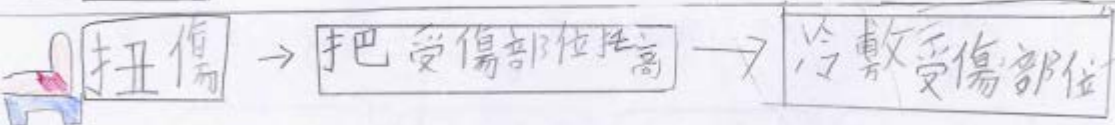 扭傷 → 把受傷部位抬高 → 冷敷受傷部位